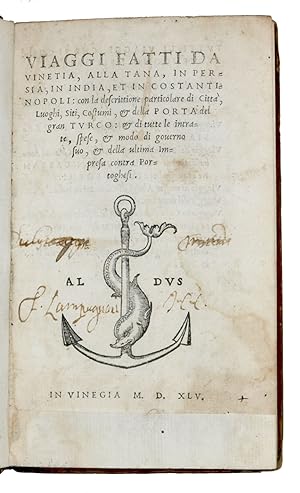 VIAGGI FATTI DA
VINETIA, ALLA TANA, IN PER-
SIA, IN INDIA, ET IN COSTANTI-
NOPOLI: con la descrittione particolare di Città,
Luoghi, Siti, Costumi, & della PORTA del
gran TVRCO: & di tutte le intra-
te, spese, & modo di gouerno
suo, & della ultima im-
presa contra Por-
toghesi.
AL DVS
IN VINEGIA M. D. XLV.